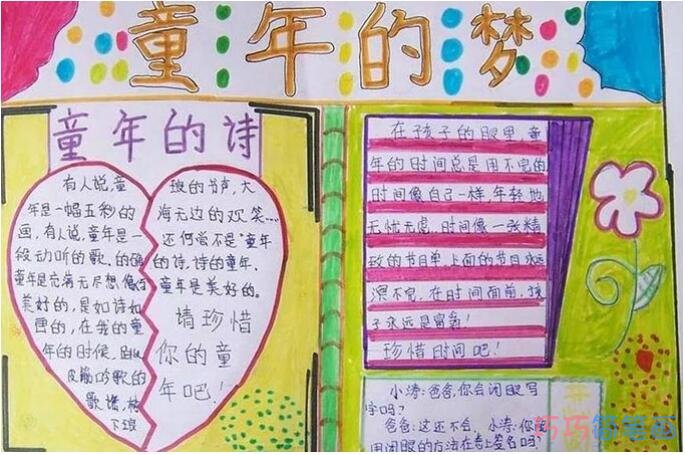 童年的梦
童年的诗
有人说,童
年是一幅五彩的
画,有人说,童年是一
段动听的歌、的确
童年是充满无尽想像
美好的,是如诗如
画的,在我的童
年的时候,
皮筋吟歌的
歌谣,格
下琅
琅的书声,大
海无边的欢笑……
还何尝不是"童年
的诗,诗的童年、
童年是美好的。
请珍惜
你的童
年吧!
在孩子的眼里,童
年的时间总是用不完的
时间像自己一样,年轻地
无忧无虑,时间像一张精
致的节目单,上面的节目永远
演不完,在时间面前,孩
子永远是富翁!
珍惜时间吧!
小涛:爸爸,你会闭眼写
字吗?
爸爸:这还不会,小涛:你
用闭眼的方法在卷上签名吗?
巧巧简笔画